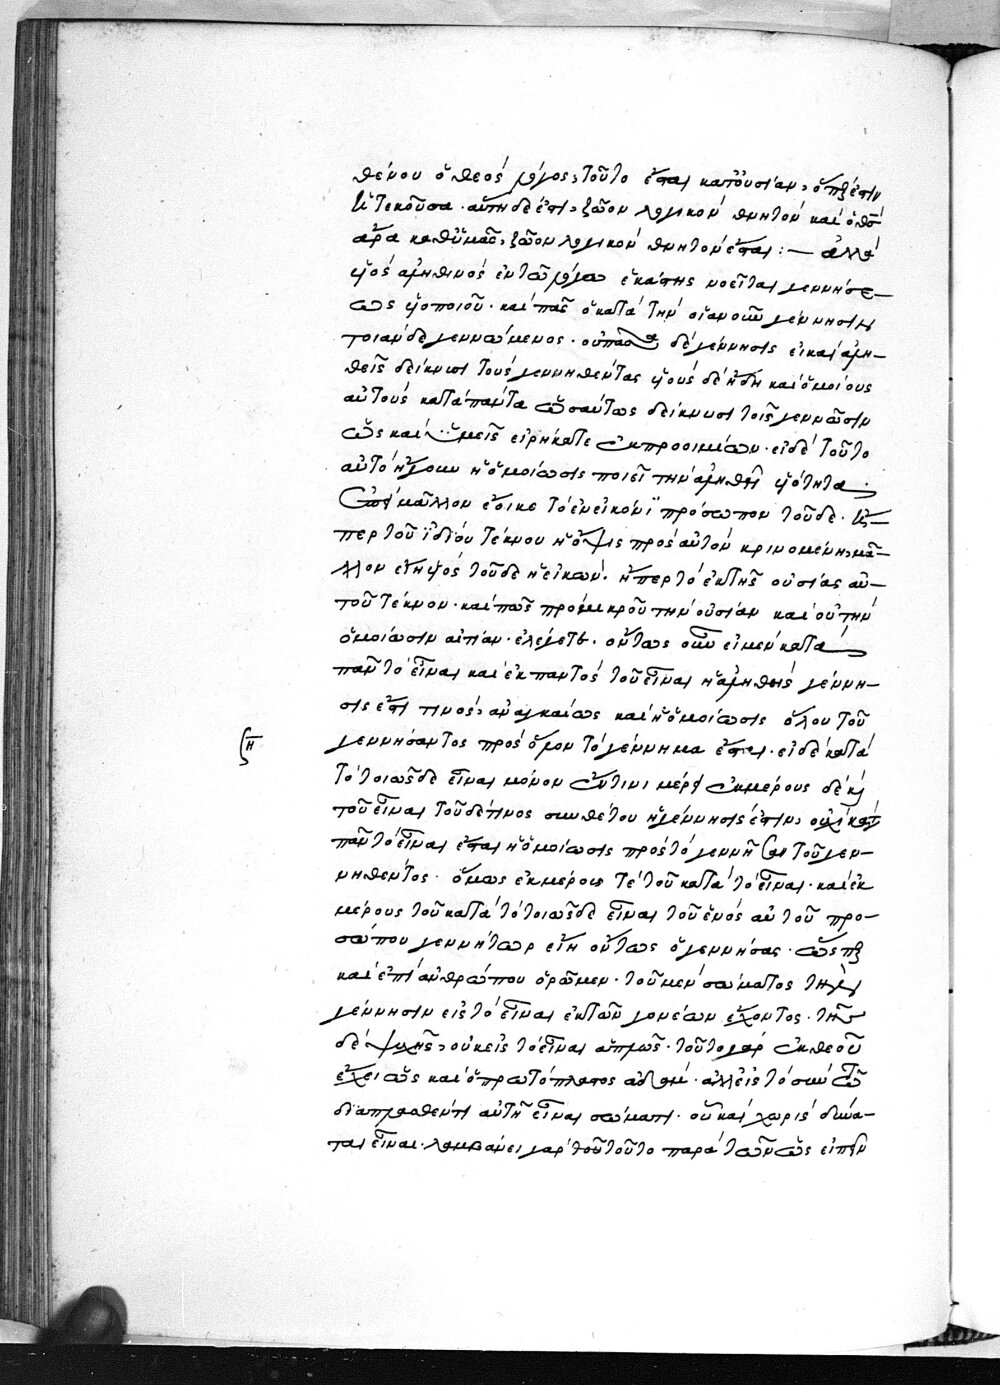 θένου ὁ θεὸς λόγος, τοῦτο ἔσται κατ' οὐσίαν, ὅπερ ἐστὶν
ἡ τεκοῦσα. αὕτη δέ ἐστι, ζῶον λογικὸν θνητὸν καὶ ὁ θεὸς
ἄρα καθ' ὑμᾶς, ζῶον λογικὸν θνητὸν ἔσται :— ἀλλὰ
υἱὸς ἀληθινὸς ἐν τῶ λόγω ἑκάστης νοεῖται γεννήσε-
ως υἱοποιοῦ. καὶ πᾶς ὁ κατὰ τὴν οἵαν οὖν γέννησιν
ποιὰν δὲ γεννώμενος. οὐ πᾶσα δὲ γέννησις εἰ καὶ ἀλη-
θεῖς δείκνυσι τοὺς γεννηθέντας υἱοὺς δὲ ἤδη καὶ ὁμοίους
αὐτοὺς κατὰ πάντα ὡσαύτως δείκνυσι τοῖς γεννῶσιν
ὡς καὶ ὑμεῖς εἰρήκατε ἐκ προοιμίων. εἰ δὲ τοῦτο
αὐτὸ ἤγουν ἡ ὁμοίωσις ποιεῖ τὴν ἀληθῆ υἱότητα.
μᾶλλον ἔοικε τὸ ἐν εἰκόνι πρόσωπον τοῦδε.
περ τοῦ ἰδίου τέκνου ἡ ὄψις πρὸς αὐτὸν κρινομένη, μᾶ-
λλον εἴη υἱὸς τοῦδε ἡ εἰκών. ἤπερ τὸ ἐκ τῆς οὐσίας αὐ-
τοῦ τέκνον. καὶ πῶς πρὸ μικροῦ τὴν οὐσίαν καὶ οὐ τὴν
ὁμοίωσιν αἰτίαν ἐλέγετε. οὕτως οὖν εἰ μὲν κατὰ
πᾶν τὸ εἶναι καὶ ἐκ παντὸς τοῦ εἶναι ἡ ἀληθὴς γέννη-
σις ἐστί τινος, ἀναγκαίως καὶ ἡ ὁμοίωσις ὅλου τοῦ
γεννήσαντος πρὸς ὅλον τὸ γέννημα ἔσται. εἰ δὲ κατὰ
τὸ τοιῶσδε εἶναι μόνον ἔν τινι μέρει ἐκ μέρους δὲ καὶ
τοῦ εἶναι τοῦδέ τινος συνθέτου ἡ γέννησίς ἐστιν, οὐχὶ κατὰ
πᾶν τὸ εἶναι ἔσται ἡ ὁμοίωσις πρὸς τὸ γεννῆσαν τοῦ γεν-
νηθέντος. ὅμως ἐκ μέρους τε τοῦ κατὰ τὸ εἶναι. καὶ ἐκ
μέρους τοῦ κατὰ τὸ τοιῶσδε εἶναι τοῦ ἑνὸς αὐτοῦ προ-
σώπου γεννήτωρ εἴη οὕτως ὁ γεννήσας. ὥσπερ
καὶ ἐπὶ ἀνθρώπου ὁρῶμεν. τοῦ μὲν σώματος τὴν
γέννησιν εἰς τὸ εἶναι ἐκ τῶν γονέων ἔχοντος. τῆς
δὲ ψυχῆς, οὐκ εἰς τὸ εἶναι ἁπλῶς. τοῦτο γὰρ ἐκ θεοῦ
ἔχει ὡς καὶ ὁ πρωτόπλαστος ἀδάμ. ἀλλ' εἰς τὸ σὺν τῶ
διαπλασθέντι αὐτῆ εἶναι σώματι. οὗ καὶ χωρὶς δύνα-
ται εἶναι. λαμβάνει γὰρ τοῦ τοῦτο παρὰ τῶν ὡς εἰπεῖν